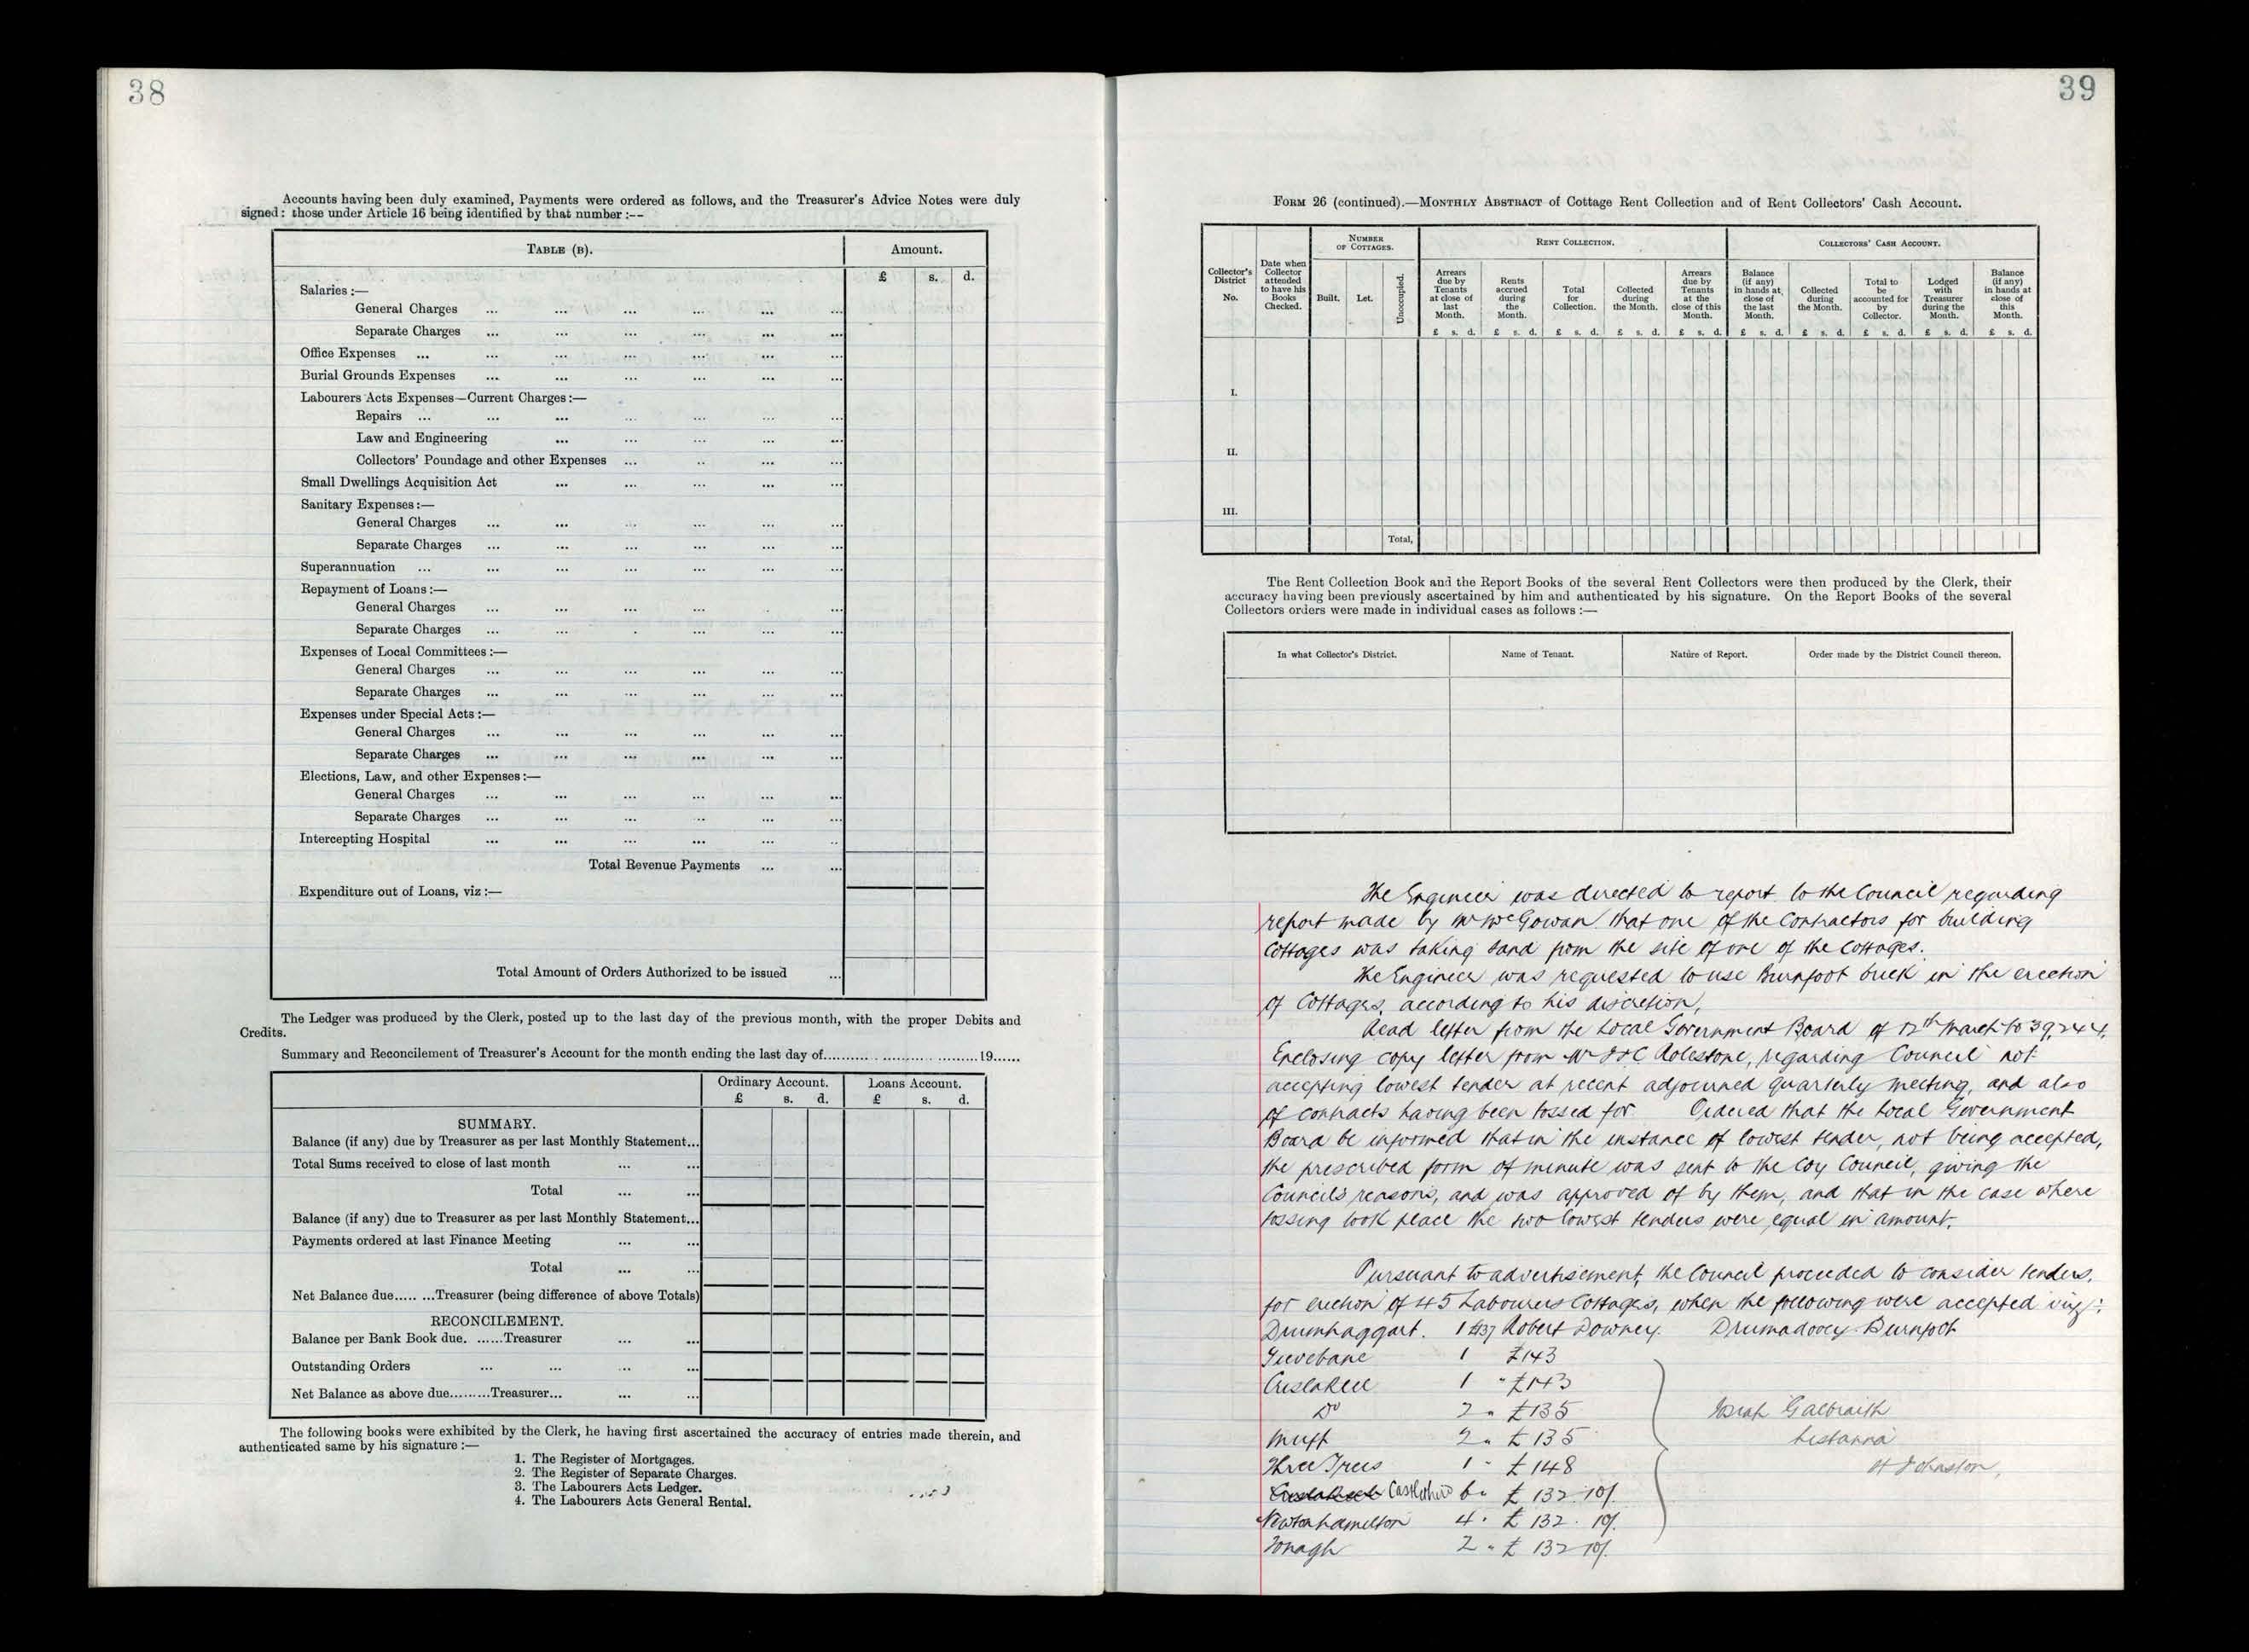 38
Accounts having been duly examined, Payments were ordered as follows, and the Treasurer's Advice Notes were duly
signed: those under Article 16 being identified by that number :--
TABLE (B). Amount.
£ s. d.
Salaries :—
General Charges ... ... ... ... ... ...
Separate Charges ... ... ... ... ... ...
Office Expenses ... ... ... ... ... ...
Burial Grounds Expenses ... ... ... ... ... ...
Labourers Acts Expenses—Current Charges :—
Repairs ... ... ... ... ... ... ...
Law and Engineering ... ... ... ... ...
Collectors' Poundage and other Expenses ... .. ... ...
Small Dwellings Acquisition Act ... ... ... ... ...
Sanitary Expenses :—
General Charges ... ... ... ... ... ...
Separate Charges ... ... ... ... ... ...
Superannuation ... ... ... ... ... ... ...
Repayment of Loans :—
General Charges ... ... ... ... . ...
Separate Charges ... ... . ... ... ...
Expenses of Local Committees :—
General Charges ... ... ... ... ... ...
Separate Charges ... ... ... ... ... ...
Expenses under Special Acts :—
General Charges ... ... ... ... ... ...
Separate Charges ... ... ... ... ... ...
Elections, Law, and other Expenses :—
General Charges ... ... ... ... ... ...
Separate Charges ... ... ... .. ... ...
Intercepting Hospital ... ... ... ... ... ..
Total Revenue Payments ... ...
Expenditure out of Loans, viz :—
Total Amount of Orders Authorized to be issued ...
The Ledger was produced by the Clerk, posted up to the last day of the previous month, with the proper Debits and
Credits.
Summary and Reconcilement of Treasurer's Account for the month ending the last day of..............................19......
Ordinary Account. Loans Account.
£ s. d. £ s. d.
SUMMARY.
Balance (if any) due by Treasurer as per last Monthly Statement...
Total Sums received to close of last month ... ...
Total ... ...
Balance (if any) due to Treasurer as per last Monthly Statement...
Payments ordered at last Finance Meeting ... ...
Total ... ...
Net Balance due..... ...Treasurer (being difference of above Totals)
RECONCILEMENT.
Balance per Bank Book due. ......Treasurer ... ...
Outstanding Orders ... ... ... ...
Net Balance as above due.........Treasurer... ... ...
The following books were exhibited by the Clerk, he having first ascertained the accuracy of entries made therein, and
authenticated same by his signature :—
1. The Register of Mortgages.
2. The Register of Separate Charges.
3. The Labourers Acts Ledger.
4. The Labourers Acts General Rental.
39
FORM 26 (continued).—MONTHLY ABSTRACT of Cottage Rent Collection and of Rent Collectors' Cash Account.
Collector's District No.
Date when Collector attended to have his Books Checked.
NUMBER OF COTTAGES.
Built. Let. Unoccupied.
RENT COLLECTION.
Arrears due by Tenants at close of last Month. £ s. d.
Rents accrued during the Month. £ s. d.
Total for Collection. £ s. d.
Collected during the Month. £ s. d.
Arrears due by Tenants at the close of this Month. £ s. d.
COLLECTORS' CASH ACCOUNT.
Balance (if any) in hands at close of the last Month. £ s. d.
Collected during the Month. £ s. d.
Total to be accounted for by Collector. £ s. d.
Lodged with Treasurer during the Month. £ s. d.
Balance (if any) in hands at close of this Month. £ s. d.
I.
II.
III.
Total,
The Rent Collection Book and the Report Books of the several Rent Collectors were then produced by the Clerk, their
accuracy having been previously ascertained by him and authenticated by his signature. On the Report Books of the several
Collectors orders were made in individual cases as follows :—
In what Collector's District. Name of Tenant. Nature of Report. Order made by the District Council thereon.
The Engineer was directed to report to the Council regarding
report made by Mr McGowan that one of the Contractors for building
Cottages was taking sand from the site of one of the Cottages.
The Engineer was requested to use Burnfoot brick in the erection
of Cottages, according to his discretion,
Read letter from the Local Government Board of 12th March
Enclosing copy letter from Mr Rolestone, regarding Council not
accepting lowest tender at recent adjourned quarterly meeting, and also
of contracts having been tossed for. Ordered that the Local Government
Board be informed that in the instance of lowest tender, not being accepted,
the prescribed form of minute was sent to the Coy Council, giving the
Council's reasons, and was approved of by them, and that in the case where
tossing took place the two lowest tenders were equal in amount.
Pursuant to advertisement, the Council proceeded to consider tenders,
for erection of 45 Labourers Cottages, when the following were accepted viz:
Drumhaggart. 1 £137 Robert Downey. Drumadooey Burnfoot
1 £143
1 " £143
Do 2 " £135 Galbraith
Muff 2 " £135
Three Trees 1 " £148 Johnston,
6 " £132.10/.
Newtonhamilton 4 " £132.10/.
Tonagh 2 " £132 10/.